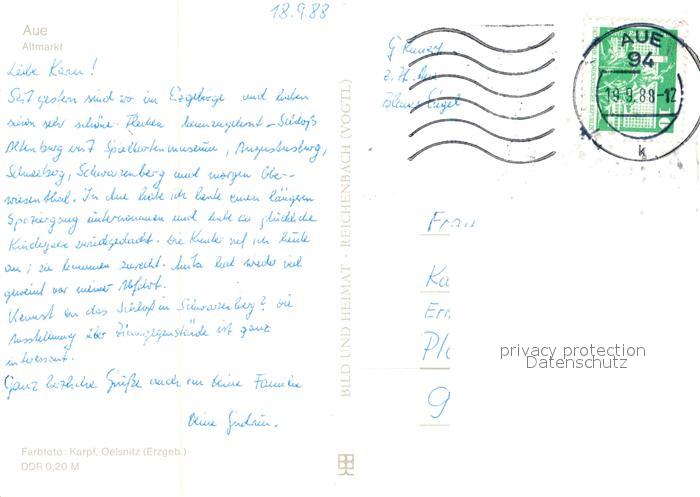 18.9.88
Aue
Altmarkt
Liebe Karin!
Seit gestern sind wir im Erzgebirge und haben
schon sehr schöne Flecken kennengelernt – Schloß
Altenburg mit Spielkartenmuseum, Augustusburg,
Schneeberg, Schwarzenberg und morgen Ober-
wiesenthal. In Aue habe ich heute einen längeren
Spaziergang unternommen und habe an glückliche
Kinderjahre zurückgedacht. Die Kinder rief ich heute
an; sie kommen zurecht. Anita hat wieder viel
geweint vor meiner Abfahrt.
Kennst du das Schloß in Schwarzenberg? Die
Ausstellung über Zinngegenstände ist ganz
interessant.
Ganz herzliche Grüße auch an Deine Familie
Deine Gudrun.
Farbfoto: Karpf, Oelsnitz (Erzgeb.)
DDR 0,20 M
BILD UND HEIMAT · REICHENBACH (VOGTL)
G
z. Zt. Aue
Blauer Engel
AUE
94
19.9.88-12
k
10
Frau
Ka
Er
Pl
9
privacy protection
Datenschutz